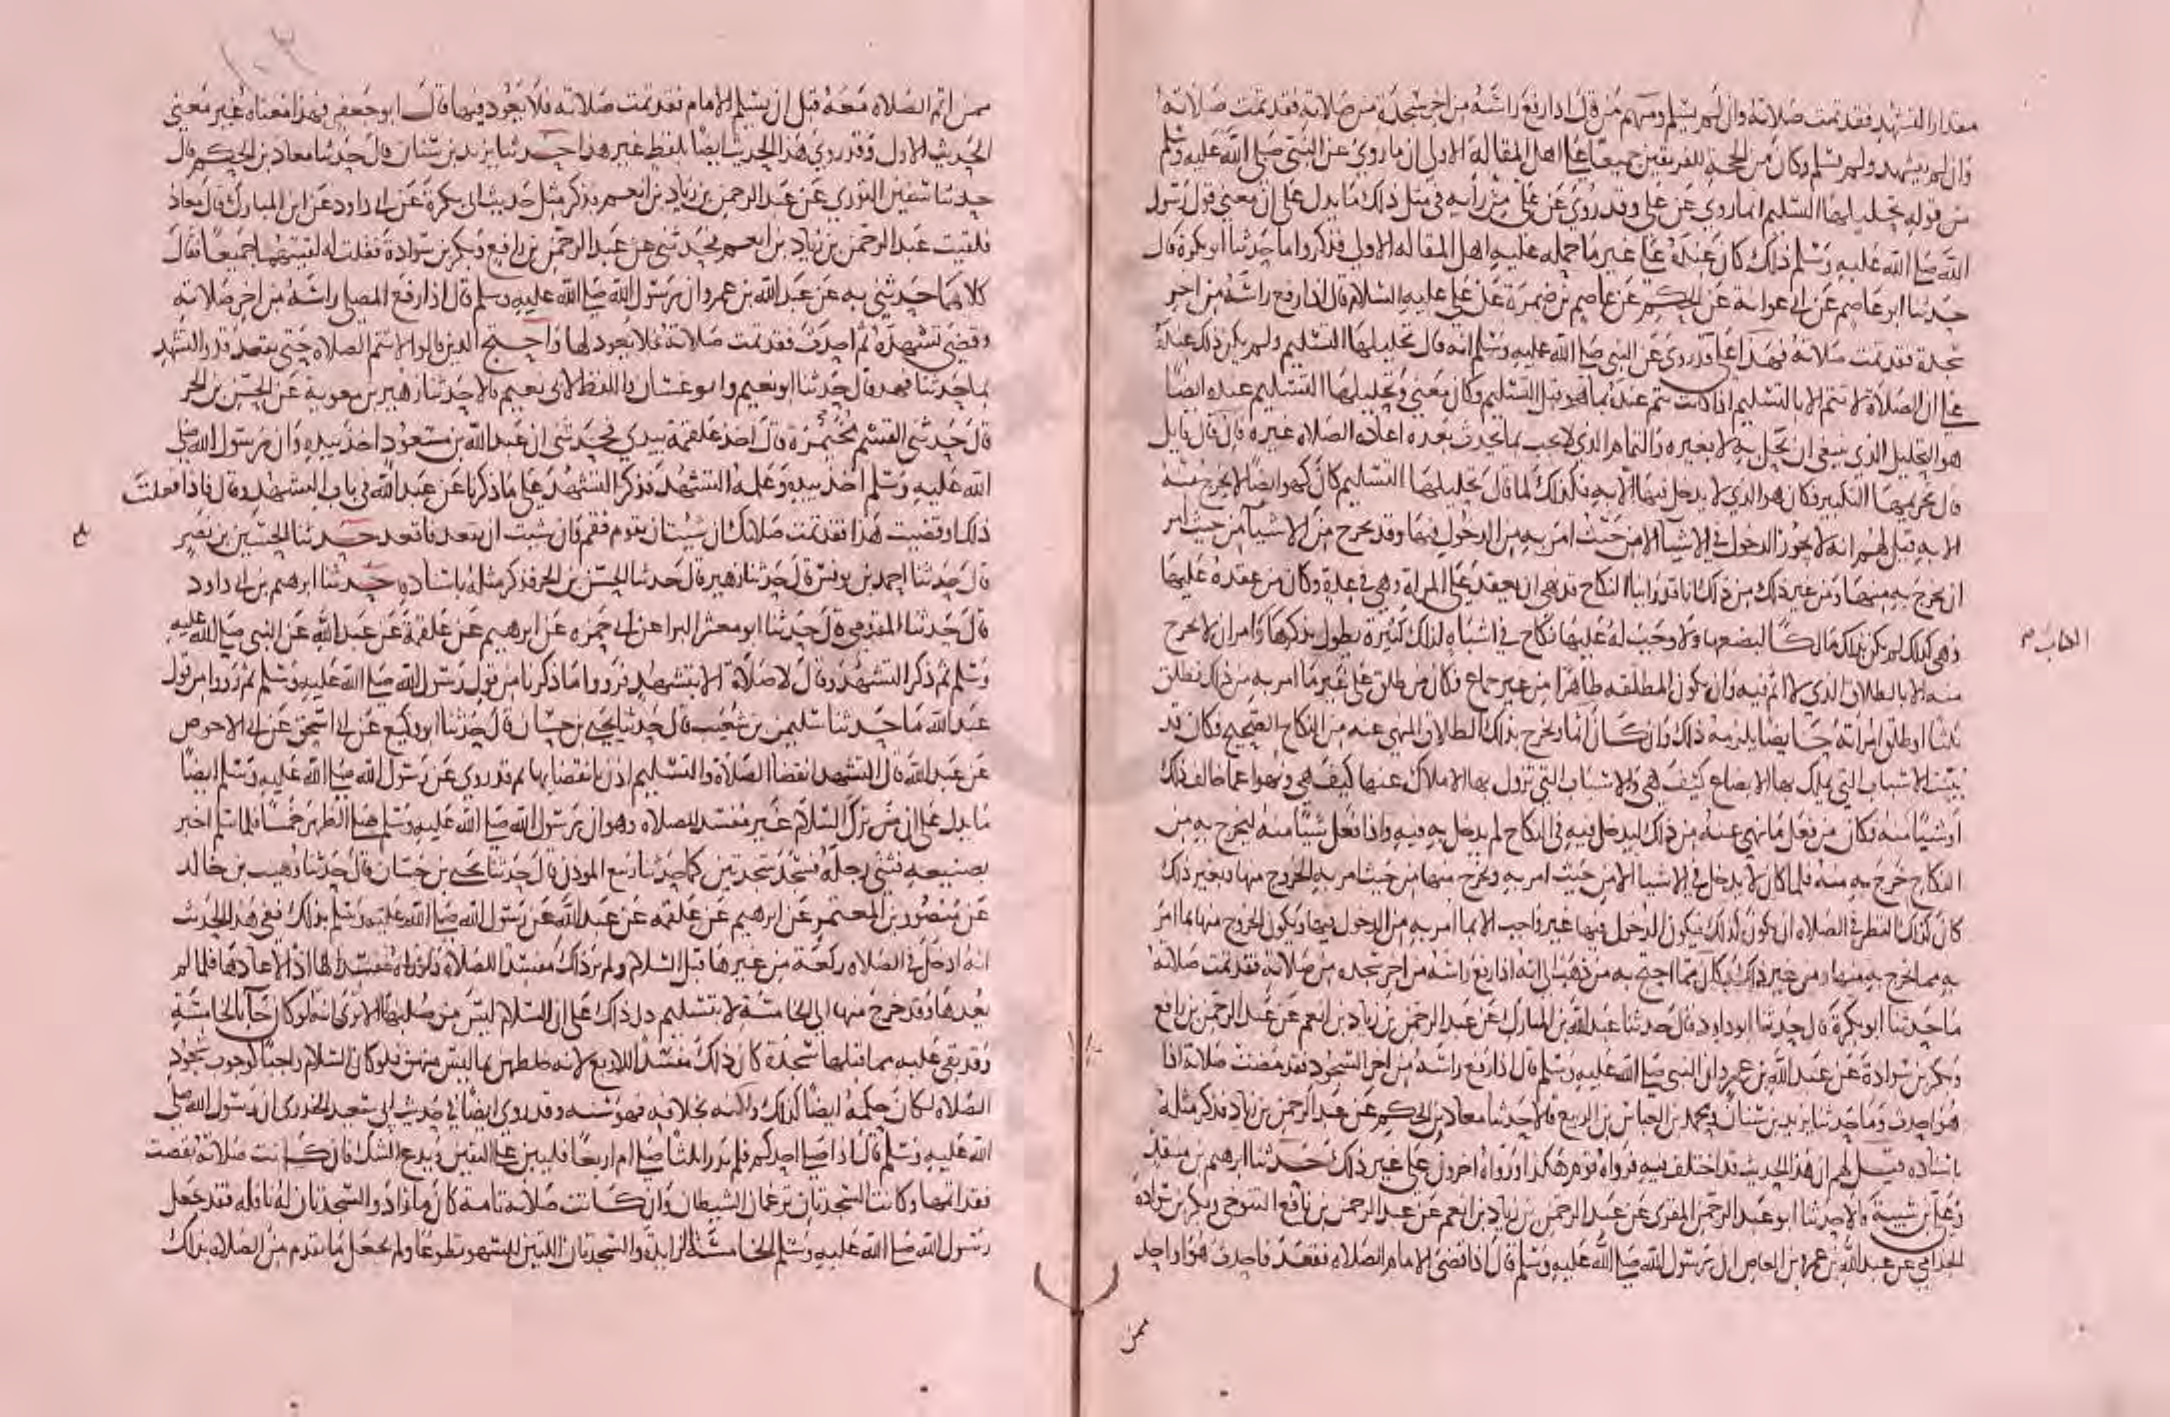 مقدار التشهد فقد تمت صلاته وان لم يسلم ومنهم من قال اذا رفع راسه من اخر سجدة من صلاته فقد تمت صلاته
وان لم يتشهد ولم يسلم وكان من الحجة للفريقين جميعا على اهل المقالة الاولى ان ما روي عن النبي صلى الله عليه وسلم
من قوله تحليلها التسليم انما روي عن علي وقد روي عن علي من رأيه في مثل ذلك ما يدل على ان معنى قول رسول
الله صلى الله عليه وسلم ذلك كان عنده على غير ما حمله عليه اهل المقالة الاولى فذكروا ما حدثنا ابو بكرة قال
حدثنا ابو عاصم عن ابي عوانة عن الحكم عن عاصم بن ضمرة عن علي عليه السلام قال اذا رفع راسه من اخر
سجدة فقد تمت صلاته فهذا علي قد روي عن النبي صلى الله عليه وسلم انه قال تحليلها التسليم ولم يكن ذلك عنده
على ان الصلاة لا تتم الا بالتسليم اذا كانت تتم عنده بما هو قبل التسليم وكان معنى وتحليلها التسليم عنده ايضا
هو التحليل الذي ينبغي ان يحل به لا بغيره والتمام الذي لا يجب بما يحدث بعده اعادة الصلاة غيره قال قال قايل
قال تحريمها التكبير فكان هو الذي لا يدخل فيها الا به فكذلك لما قال تحليلها التسليم كان كهو ايضا لا يخرج منه
الا به قيل لهم انه لا يجوز الدخول في الاشيا الا من حيث امر به من الدخول فيها وقد يخرج من الاشيا من حيث امر
ان يخرج به منها ومن غير ذلك من ذلك انا قد راينا النكاح قد نهي ان يعقد على المراة وهي في عدة وكان من عقده عليها
وهي كذلك لم يكن بذلك مالكا لبضعها ولا وجب له عليها نكاح في اشباه لذلك كثيرة يطول بذكرها وامر ان لا يخرج
منه الا بالطلاق الذي لا اثم فيه وان يكون المطلقة طاهرا من غير جماع وكان من طلق على غير ما امر به من ذلك فطلق
ثلثا او طلق امراته حايضا يلزمه ذلك وان كان اثما ويخرج بذلك الطلاق المنهي عنه من النكاح الصحيح وكان قد
بينت الاسباب التي يملك بها الابضاع كيف هي والاسباب التي تزول بها الاملاك عنها كيف هي ونهوا عما خالف ذلك
او شيئا منه فكان من فعل ما نهي عنه من ذلك ليدخل فيه في النكاح لم يدخل به فيه واذا فعل شيئا منه ليخرج به من
النكاح خرج به منه فلما كان لا يدخل في الاشيا الا من حيث امر به ويخرج منها من حيث امر به الخروج منها وبغير ذلك
كان كذلك النظر في الصلاة ان يكون كذلك فيكون الدخول فيها غير واجب الا بما امر به من الدخول فيها ويكون الخروج منها بما امر
به مما يخرج به منها ومن غير ذلك فكان مما احتج به من ذهب الى انه اذا رفع راسه من اخر سجدة من صلاته فقد تمت صلاته
ما حدثنا ابو بكرة قال حدثنا ابو داود قال حدثنا عبد الله بن المبارك عن عبد الرحمن بن زياد بن انعم عن عبد الرحمن بن رافع
وبكر بن سوادة عن عبد الله بن عمرو ان النبي صلى الله عليه وسلم قال اذا رفع راسه من اخر السجود فقد مضت صلاته اذا
هو احدث وما حدثنا يزيد بن سنان ومحمد بن العباس بن الربيع قالا حدثنا معاذ بن الحكم عن عبد الرحمن بن زياد فذكر مثله
باسناده قيل لهم ان هذا الحديث قد اختلف فيه فرواه قوم هكذا ورواه اخرون على غير ذلك حدثنا ابرهيم بن منقذ
وعلي بن شيبة قالا حدثنا ابو عبد الرحمن المقرى عن عبد الرحمن بن زياد بن انعم عن عبد الرحمن بن رافع التنوخي وبكر بن سوادة
الجذامي عن عبد الله بن عمرو بن العاص ان رسول الله صلى الله عليه وسلم قال اذا قضى الامام الصلاة فقعد فاحدث هو او احد
ممن
ممن اتم الصلاة معه قبل ان يسلم الامام فقد تمت صلاته فلا يعود فيها قال ابو جعفر فهذا معناه غير معنى
الحديث الاول وقد روي هذا الحديث ايضا بلفظ غير هذا حدثنا يزيد بن سنان قال حدثنا معاذ بن الحكم قال
حدثنا سفين الثوري عن عبد الرحمن بن زياد بن انعم فذكر مثل حديث ابي بكرة عن ابي داود عن ابن المبارك قال معاذ
فلقيت عبد الرحمن بن زياد بن انعم فحدثني عن عبد الرحمن بن رافع وبكر بن سوادة فقلت له لقيتهما جميعا فقال
كلاهما حدثني به عن عبد الله بن عمرو ان رسول الله صلى الله عليه وسلم قال اذا رفع المصلي راسه من اخر صلاته
وقضى تشهده ثم احدث فقد تمت صلاته فلا يعود لها واحتج الذين قالوا لا تتم الصلاة حتى يقعد قدر التشهد
بما حدثنا فهد قال حدثنا ابو نعيم وابو غسان واللفظ لابي نعيم قالا حدثنا زهير بن معوية عن الحسن بن الحر
قال حدثني القسم بن مخيمرة قال اخذ علقمة بيدي فحدثني ان عبد الله بن مسعود اخذ بيده وان رسول الله صلى
الله عليه وسلم اخذ بيده وعلمه التشهد فذكر التشهد على ما ذكرنا عن عبد الله في باب التشهد وقال فاذا فعلت
ذلك او قضيت هذا فقد تمت صلاتك ان شيت ان تقوم فقم وان شيت ان تقعد فاقعد حدثنا الحسين بن نصر
قال حدثنا احمد بن يونس قال حدثنا زهير قال حدثنا الحسن بن الحر فذكر مثله باسناده حدثنا ابرهيم بن ابي داود
قال حدثنا المقدمي قال حدثنا ابو معشر البرا عن ابي حمزه عن ابرهيم عن علقمة عن عبد الله عن النبي صلى الله عليه
وسلم ثم ذكر التشهد وقال لا صلاة الا بتشهد فرووا ما ذكرنا من قول رسول الله صلى الله عليه وسلم ثم رووا من قول
عبد الله ما حدثنا سليمن بن شعيب قال حدثنا يحيى بن حسان قال حدثنا ابو وكيع عن ابي اسحق عن ابي الاحوص
عن عبد الله قال التشهد انقضا الصلاة والتسليم اذن بانقضايها ثم قد روي عن رسول الله صلى الله عليه وسلم ايضا
ما يدل على ان من ترك السلام غير مفسد للصلاة وهو ان رسول الله صلى الله عليه وسلم صلى الظهر خمسا فلما سلم اخبر
بصنيعه فثنى رجله فسجد سجدتين كما حدثنا ربيع الموذن قال حدثنا يحيى بن حسان قال حدثنا وهيب بن خالد
عن منصور بن المعتمر عن ابرهيم عن علقمه عن عبد الله عن رسول الله صلى الله عليه وسلم بذلك ففي هذا الحديث
انه ادخل في الصلاه ركعة من غيرها قبل السلام ولم ير ذلك مفسدا للصلاة ولو راه مفسدا لها اذا لاعادها فلما لم
يعدها وقد خرج منها الى الخامسة لا بتسليم دل ذلك على ان السلام ليس من صلبها الا ترى انه لو كان جا بالخامسة
وقد بقي عليه مما قبلها سجدة كان ذلك مفسدا للاربع لانه خلطهن بما ليس منهن فلو كان السلام واجبا كوجوب سجود
الصلاة لكان حكمه ايضا كذلك ولكنه بخلافه فهو سنة وقد روي ايضا في حديث ابي سعيد الخدري ان رسول الله صلى
الله عليه وسلم قال اذا صلى احدكم فلم يدر اثلثا صلى ام اربعا فليبن على اليقين ويدع الشك فان كانت صلاته نقصت
فقد اتمها وكانت السجدتان ترغمان الشيطان وان كانت صلاته تامة كان ما زاد والسجدتان له نافلة فقد جعل
رسول الله صلى الله عليه وسلم الخامسة الزايدة والسجدتان اللتين للسهو تطوعا ولم يجعل ما تقدم من الصلاه بذلك